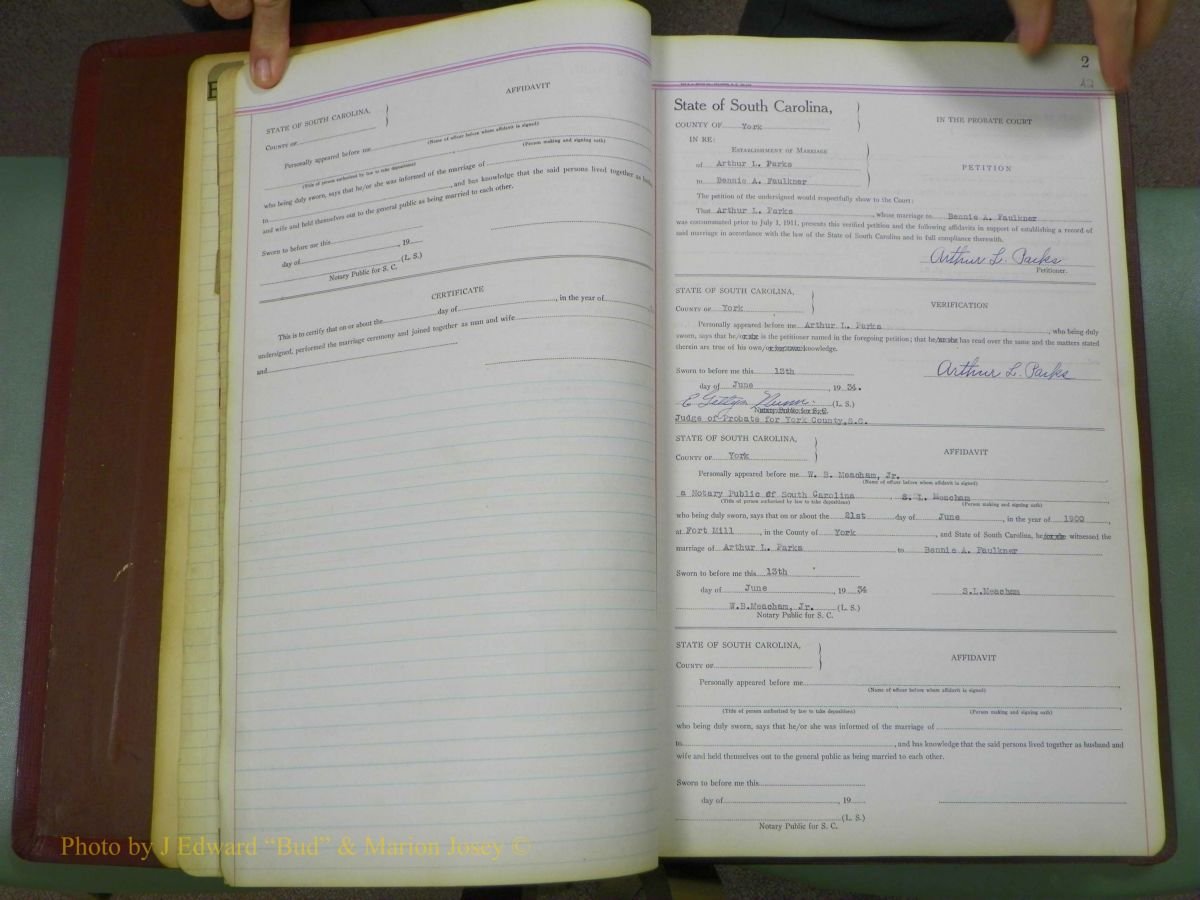 AFFIDAVIT
STATE OF SOUTH CAROLINA,
COUNTY OF
Personally appeared before me
(Name of officer before whom affidavit is signed)
(Title of person authorized by law to take depositions)
(Person making and signing oath)
who being duly sworn, says that he/or she was informed of the marriage of
to, and has knowledge that the said persons lived together as
and wife and held themselves out to the general public as being married to each other.
Sworn to before me this
day of, 19
(L. S.)
Notary Public for S. C.
CERTIFICATE
This is to certify that on or about the day of, in the year of
undersigned, performed the marriage ceremony and joined together as man and wife
and
2
State of South Carolina,
COUNTY OF York
IN RE:
ESTABLISHMENT OF MARRIAGE
of Arthur L. Parks
to Bennie A. Faulkner
IN THE PROBATE COURT
PETITION
The petition of the undersigned would respectfully show to the Court:
That Arthur L. Parks, whose marriage to Bennie A. Faulkner
was consummated prior to July 1, 1911, presents this verified petition and the following affidavits in support of establishing a record of
said marriage in accordance with the law of the State of South Carolina and in full compliance therewith.
Arthur L. Parks
Petitioner.
STATE OF SOUTH CAROLINA,
COUNTY OF York
VERIFICATION
Personally appeared before me Arthur L. Parks, who being duly
sworn, says that he/or she is the petitioner named in the foregoing petition; that he/or she has read over the same and the matters stated
therein are true of his own/or her own knowledge.
Sworn to before me this 13th
day of June, 19 34.
Arthur L. Parks
E Gettys Nunn (L. S.)
Notary Public for S. C.
Judge of Probate for York County, S.C.
STATE OF SOUTH CAROLINA,
COUNTY OF York
AFFIDAVIT
Personally appeared before me W. B. Meacham, Jr.
(Name of officer before whom affidavit is signed)
a Notary Public of South Carolina, S. L. Meacham
(Title of person authorized by law to take depositions) (Person making and signing oath)
who being duly sworn, says that on or about the 21st day of June, in the year of 1900,
at Fort Mill, in the County of York, and State of South Carolina, he/or she witnessed the
marriage of Arthur L. Parks to Bennie A. Faulkner
Sworn to before me this 13th
day of June, 19 34
S.L.Meacham
W.B.Meacham, Jr. (L. S.)
Notary Public for S. C.
STATE OF SOUTH CAROLINA,
COUNTY OF
AFFIDAVIT
Personally appeared before me
(Name of officer before whom affidavit is signed)
(Title of person authorized by law to take depositions) (Person making and signing oath)
who being duly sworn, says that he/or she was informed of the marriage of
to, and has knowledge that the said persons lived together as husband and
wife and held themselves out to the general public as being married to each other.
Sworn to before me this
day of, 19
(L. S.)
Notary Public for S. C.
Photo by J Edward "Bud" & Marion Josey ©